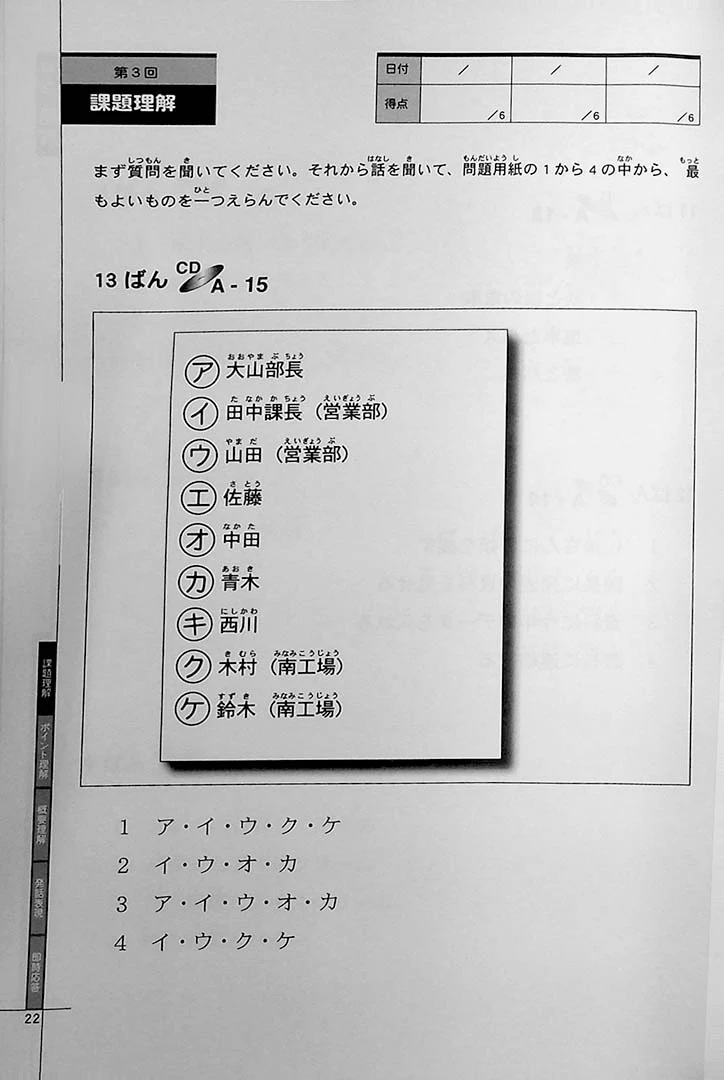 第3回
課題理解
日付 / / /
得点 /6 /6 /6
まず質問を聞いてください。それから話を聞いて、問題用紙の1から4の中から、最
もよいものを一つえらんでください。
13ばん CD A-15
ア 大山部長
イ 田中課長（営業部）
ウ 山田（営業部）
エ 佐藤
オ 中田
カ 青木
キ 西川
ク 木村（南工場）
ケ 鈴木（南工場）
1 ア・イ・ウ・ク・ケ
2 イ・ウ・オ・カ
3 ア・イ・ウ・オ・カ
4 イ・ウ・ク・ケ
課題理解
ポイント理解
概要理解
発話表現
即時応答
22